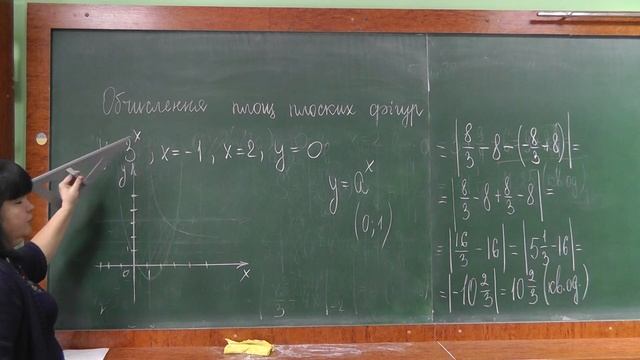 Обчислення площ плоских фігур
3ˣ, x=-1, x=2, y=0
y
y=aˣ
(0;1)
0 1 x
= |8/3 - 8 - (-8/3 + 8)| =
= |8/3 - 8 + 8/3 - 8| =
= |16/3 - 16| = |5 1/3 - 16| =
= |-10 2/3| = 10 2/3 (кв.од.)